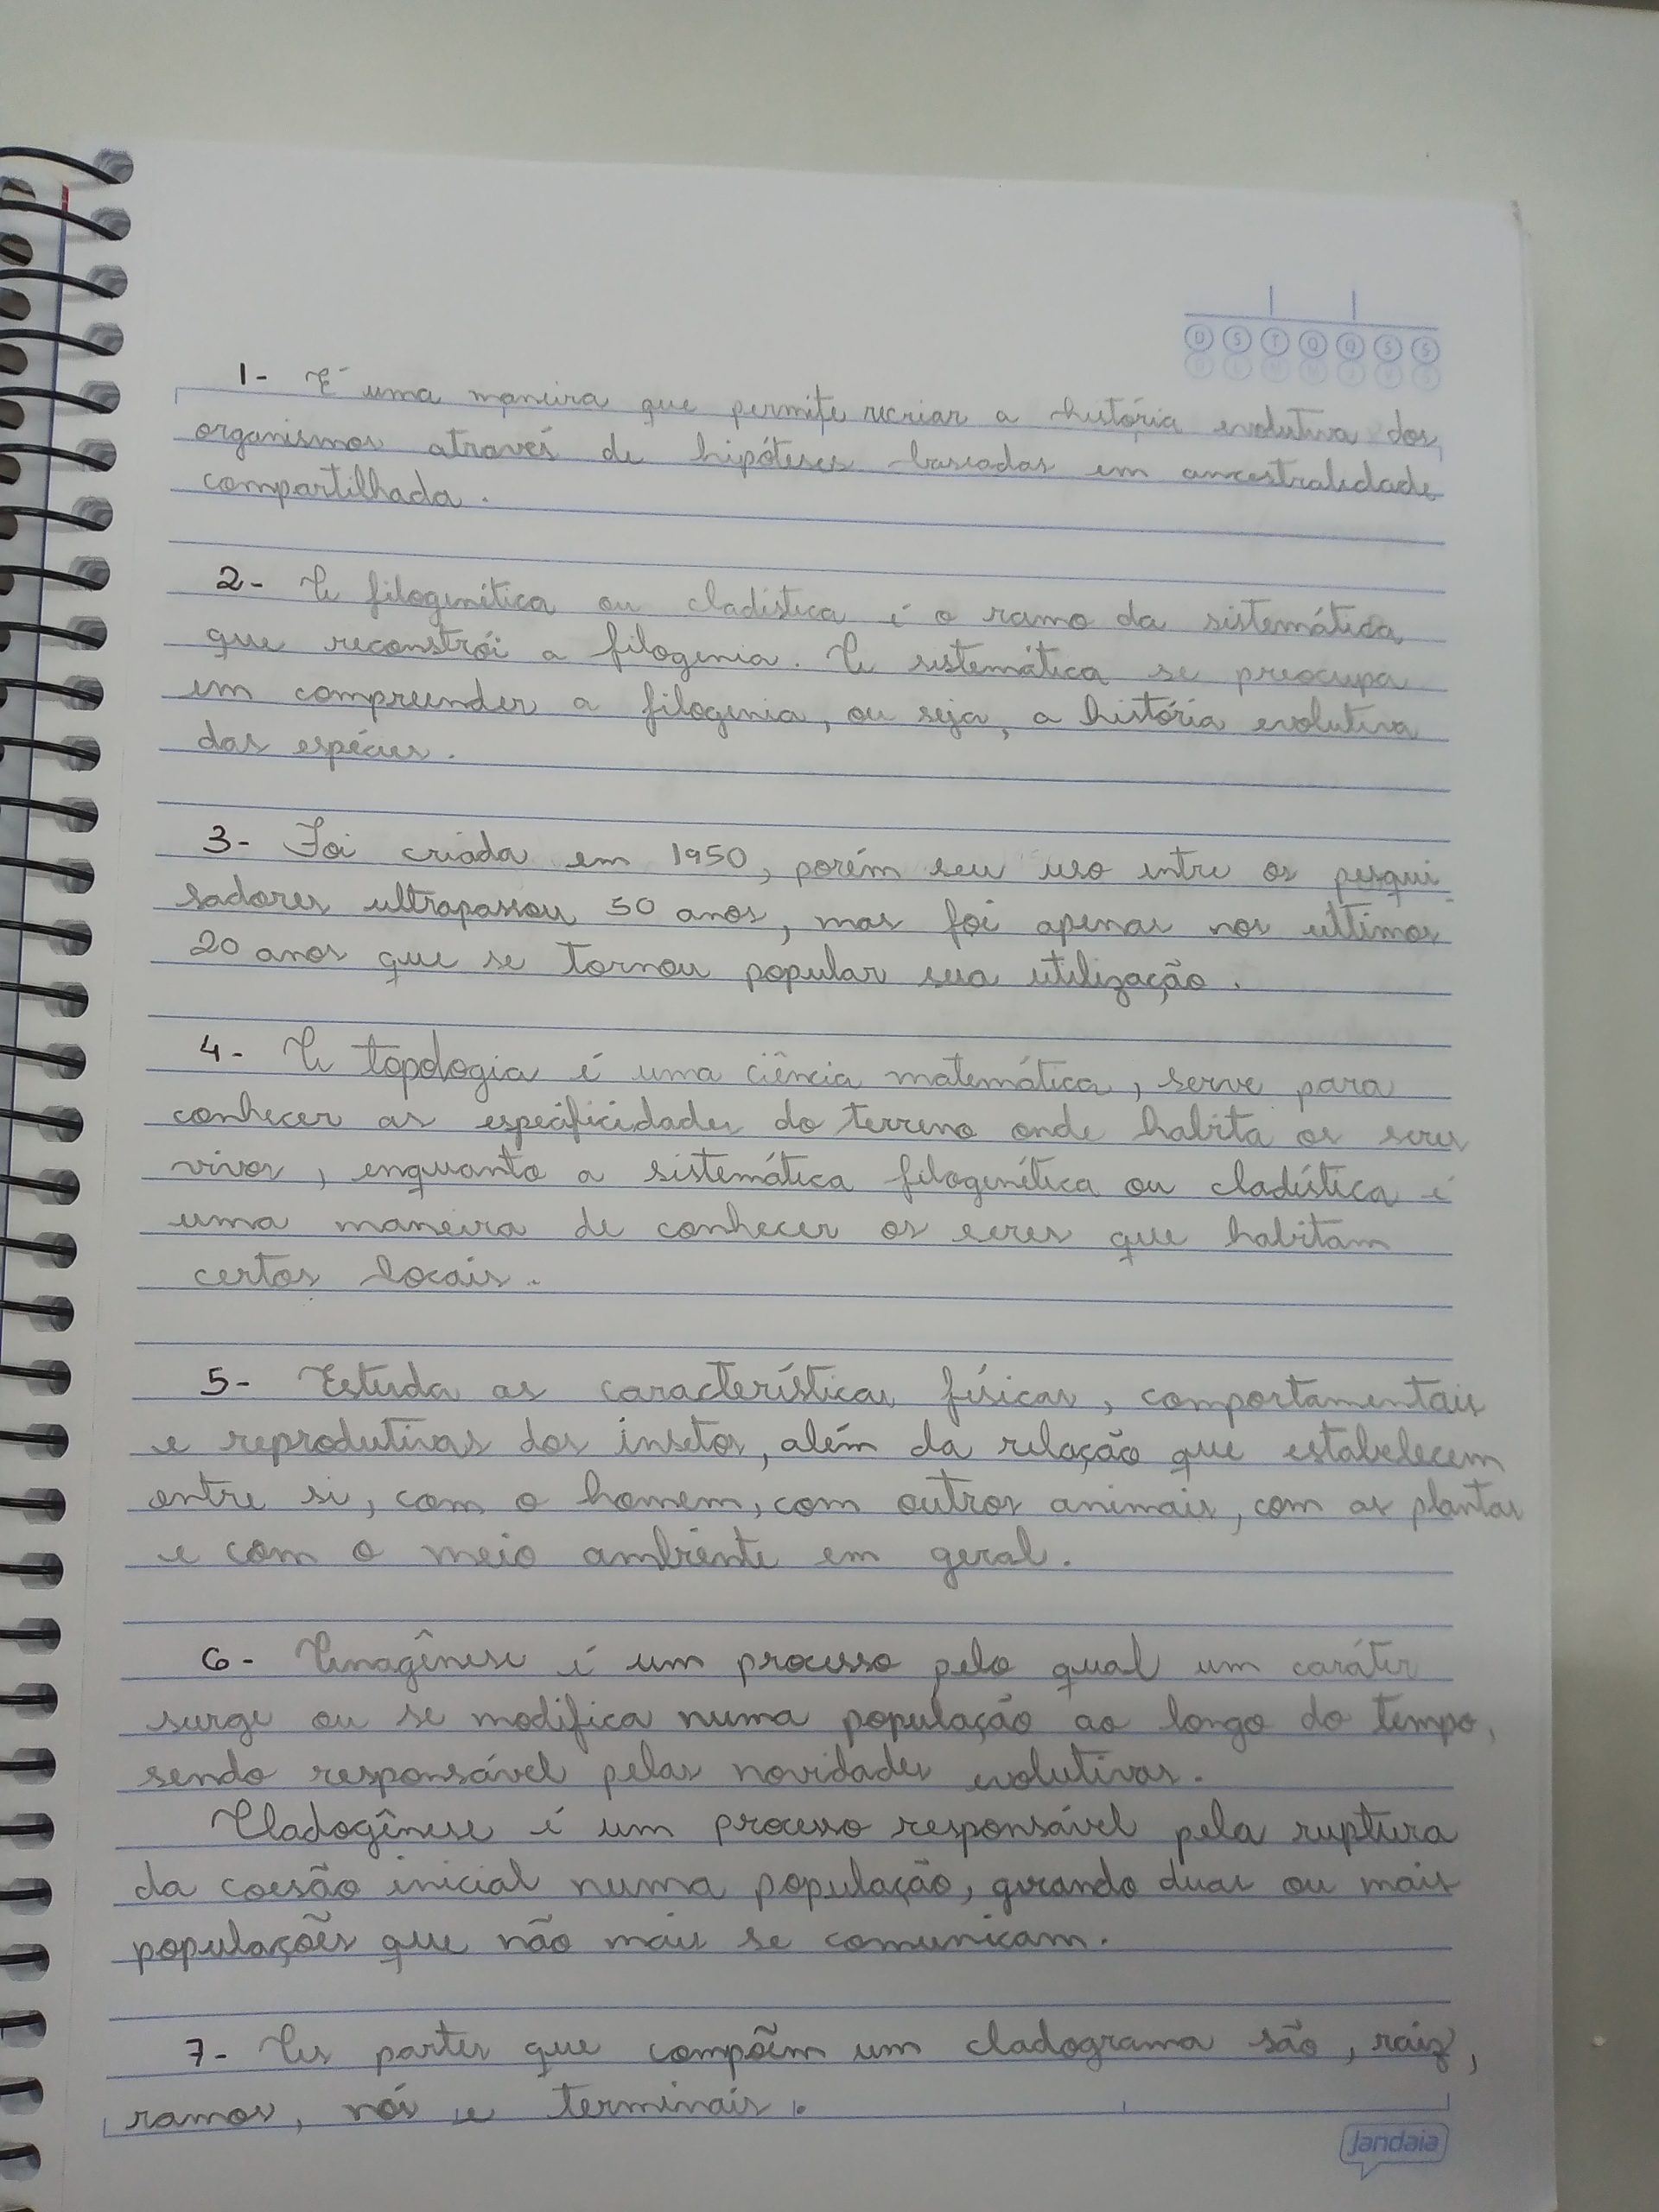 D S T Q Q S S
1- É uma maneira que permite recriar a história evolutiva dos
organismos através de hipóteses baseadas em ancestralidade
compartilhada.
2- A filogenética ou cladística é o ramo da sistemática
que reconstrói a filogenia. A sistemática se preocupa
em compreender a filogenia, ou seja, a história evolutiva
das espécies.
3- Foi criada em 1950, porém seu uso entre os pesqui
sadores ultrapassou 50 anos, mas foi apenas nos últimos
20 anos que se tornou popular sua utilização.
4- A topologia é uma ciência matemática, serve para
conhecer as especificidades do terreno onde habita os seres
vivos, enquanto a sistemática filogenética ou cladística é
uma maneira de conhecer os seres que habitam
certos locais.
5- Estuda as características físicas, comportamentais
e reprodutivas dos insetos, além da relação que estabelecem
entre si, com o homem, com outros animais, com as plantas
e com o meio ambiente em geral.
6- Anagênese é um processo pelo qual um caráter
surge ou se modifica numa população ao longo do tempo,
sendo responsável pelas novidades evolutivas.
Cladogênese é um processo responsável pela ruptura
da coesão inicial numa população, gerando duas ou mais
populações que não mais se comunicam.
7- As partes que compõem um cladograma são, raiz,
ramos, nós e terminais.
Jandaia